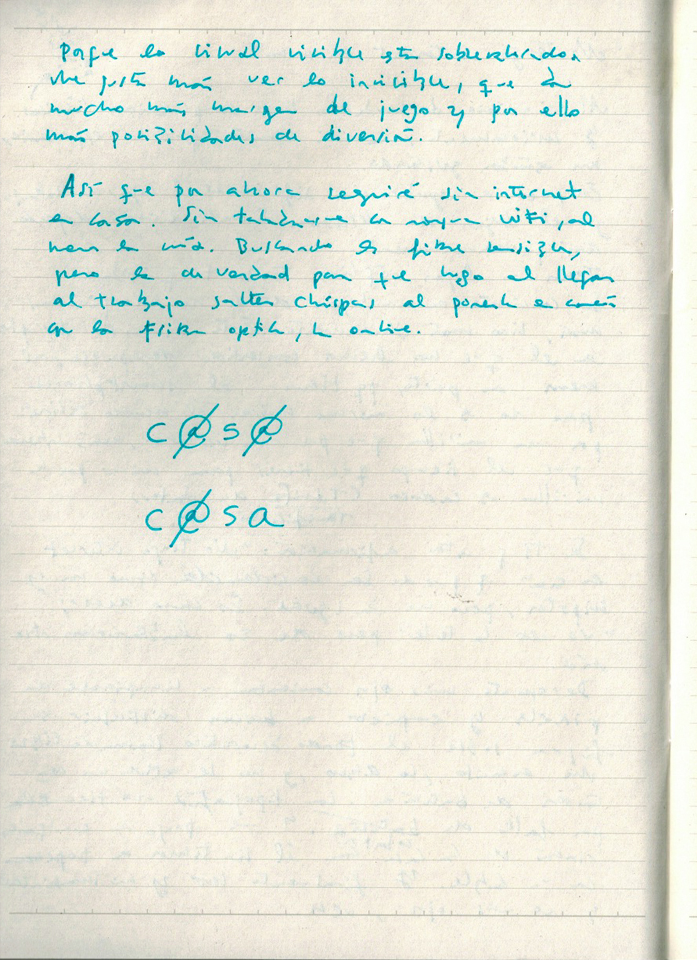 Porque lo visual visible está sobrevalorado.
Me gusta más ver lo invisible, que da
mucho más margen de juego y por ello
más posibilidades de diversión.
Así que por ahora seguiré sin internet
en casa. Sin wifi, al
menos la mía. Buscando la fibra sensible,
pero la de verdad para que luego al llegar
al trabajo salten chispas al ponerla en
con la fibra óptica, la online.
c@s@
c@sa